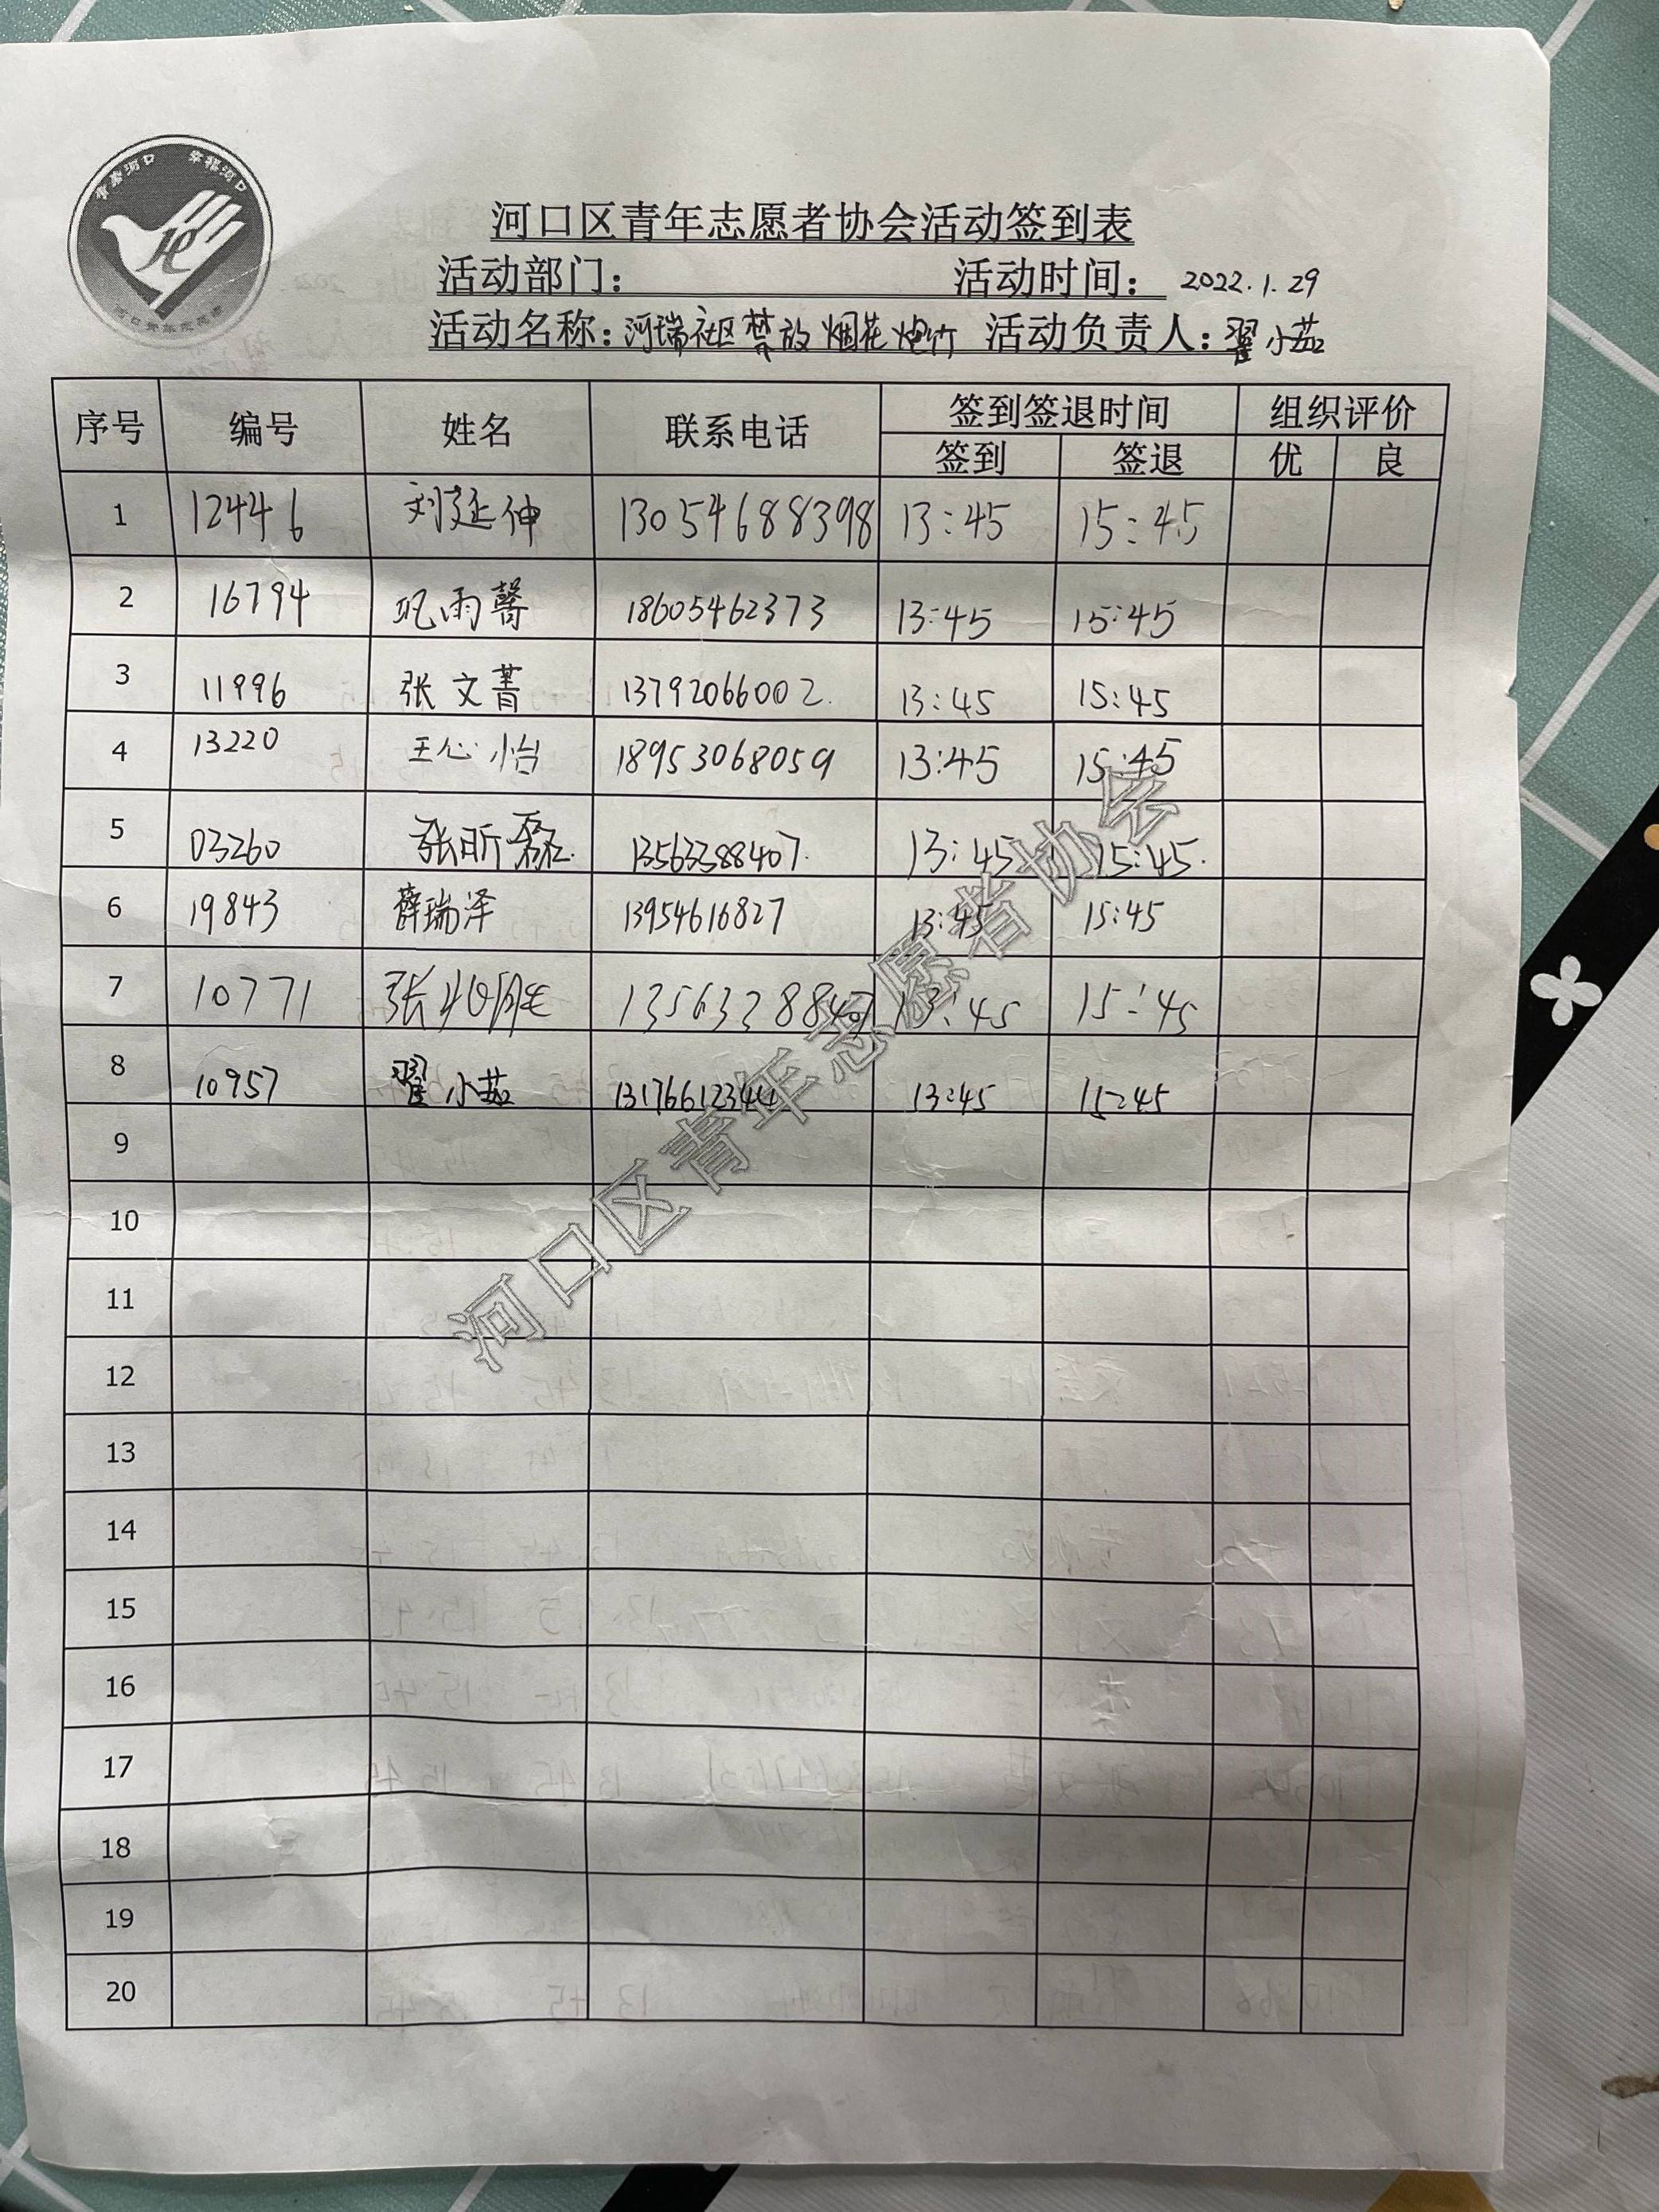 青春河口 幸福河口
河口区青年志愿者协会活动签到表
活动部门： 活动时间： 2022.1.29
活动名称：河瑞社区禁放烟花炮竹 活动负责人：翟小茹
序号 编号 姓名 联系电话 签到签退时间 组织评价
签到 签退 优 良
1 12446 刘延伸 13054688398 13:45 15:45
2 16794 巩雨馨 18605462373 13:45 15:45
3 11996 张文菁 13792066002. 13:45 15:45
4 13220 王心怡 18953068059 13:45 15:45
5 03260 张昕磊 13563388407. 13:45 15:45.
6 19843 薛瑞泽 13954616827 13:45 15:45
7 10771 张 13:45 15:45
8 10957 翟小茹 13176612344 13:45 15:45
9
10
11
12
13
14
15
16
17
18
19
20
河口区青年志愿者协会